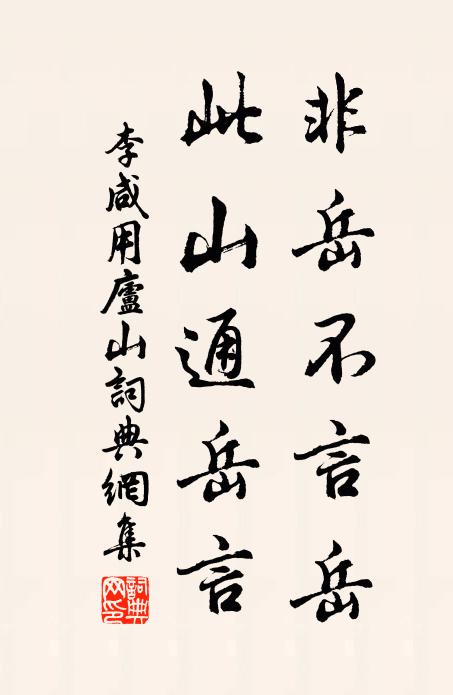 非岳不言岳
此山通岳言
李咸用廬山詞典網集
詞典网印